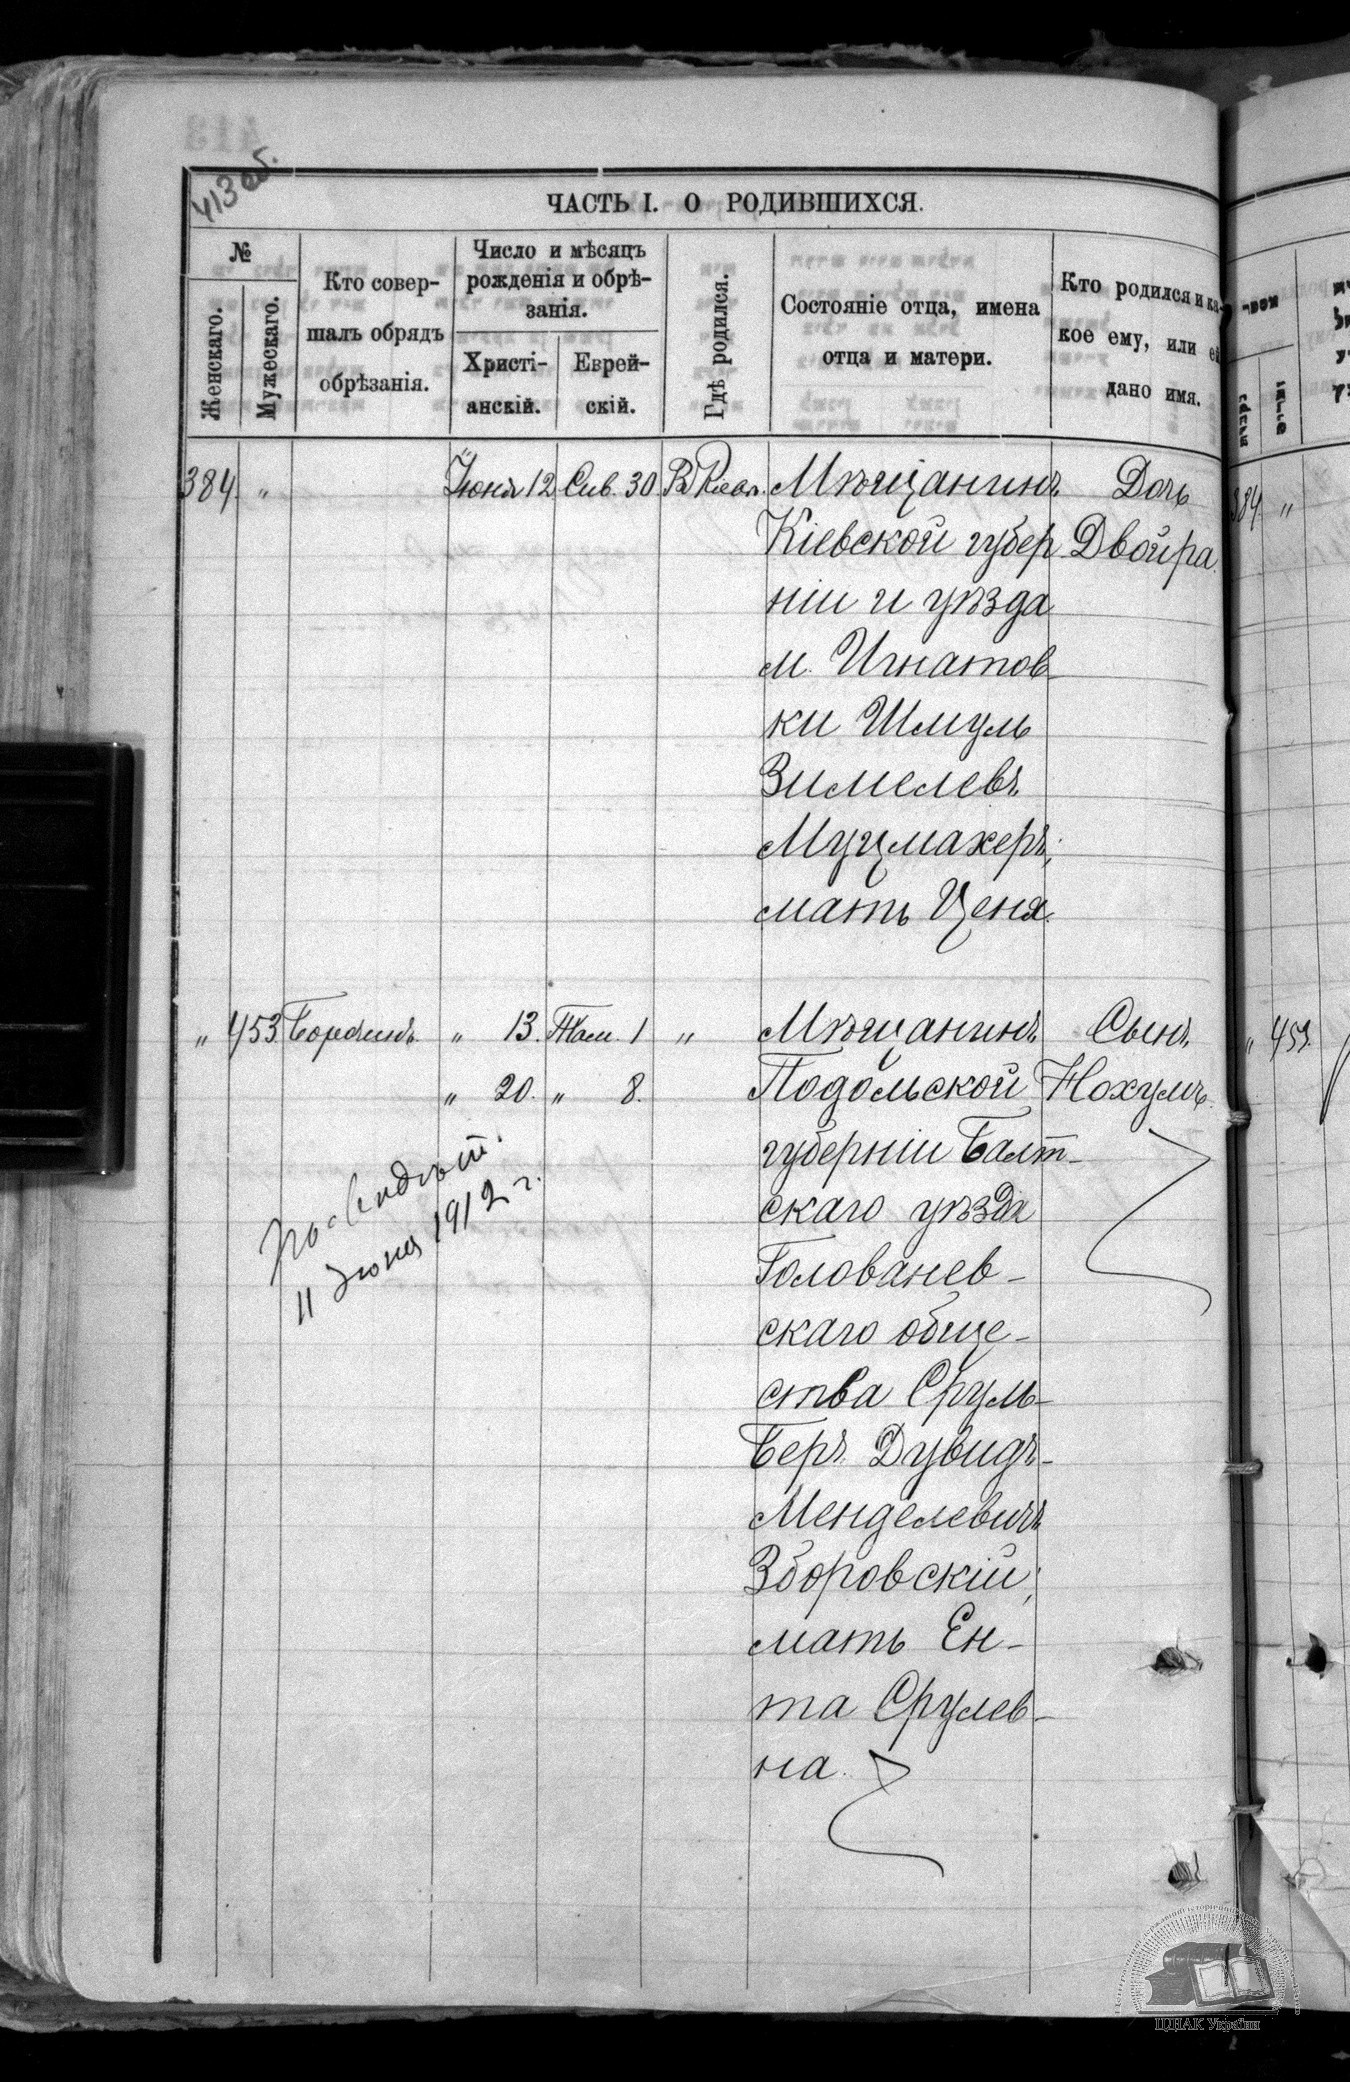 413 об.
ЧАСТЬ I. О РОДИВШИХСЯ.
№
Женскаго.
Мужескаго.
Кто совер-
шалъ обрядъ
обрѣзанія.
Число и мѣсяцъ
рожденія и обрѣ-
занія.
Христі-
анскій.
Еврей-
скій.
Гдѣ родился.
Состояніе отца, имена
отца и матери.
Кто родился и ка-
кое ему, или ей
дано имя.
384 " Іюня 12 Сив. 30 Въ Кіевѣ. Мѣщанинъ Дочь
Кіевской губер Двойра.
ніи и уѣзда
м. Игнатов-
ки Шмуль
Зимелевъ
Муцмахеръ;
мать Ценя.
" 453 " 13. Там. 1 " Мѣщанинъ Сынъ
" 20. " 8. Подольской Нохумъ.
губерніи Балт-
скаго уѣзда
Голованев-
скаго обще-
ства Сруль-
Беръ Дувидъ-
Менделевичъ
Зборовскій;
мать Ен-
та Срулев-
на.
11 Іюня 1912 г.
384 "
" 453.
ЦДІАК України